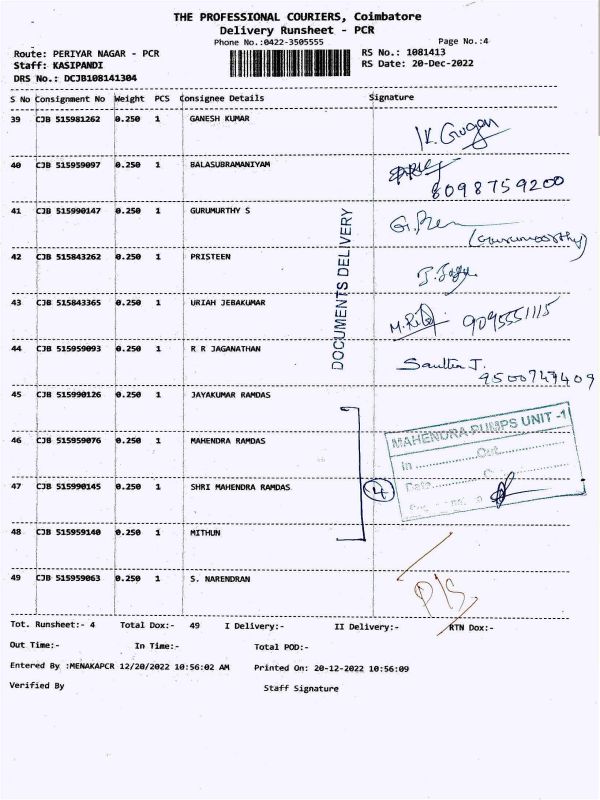 THE PROFESSIONAL COURIERS, Coimbatore
Delivery Runsheet - PCR
Phone No.:0422-3505555 Page No.:4
Route: PERIYAR NAGAR - PCR RS No.: 1081413
Staff: KASIPANDI RS Date: 20-Dec-2022
DRS No.: DCJB108141304
S No Consignment No Weight PCS Consignee Details Signature
39 CJB 515981262 0.250 1 GANESH KUMAR K. Gugan
40 CJB 515959097 0.250 1 BALASUBRAMANIYAM
8098759200
41 CJB 515990147 0.250 1 GURUMURTHY S
(Gurumoorthy)
42 CJB 515843262 0.250 1 PRISTEEN
43 CJB 515843365 0.250 1 URIAH JEBAKUMAR 9095551115
DOCUMENTS DELIVERY
44 CJB 515959093 0.250 1 R R JAGANATHAN
9500747409
45 CJB 515990126 0.250 1 JAYAKUMAR RAMDAS
MAHENDRA PUMPS UNIT -1
46 CJB 515959076 0.250 1 MAHENDRA RAMDAS
In Out
47 CJB 515990145 0.250 1 SHRI MAHENDRA RAMDAS 4
Date
48 CJB 515959140 0.250 1 MITHUN
49 CJB 515959063 0.250 1 S. NARENDRAN
P/S
Tot. Runsheet:- 4 Total Dox:- 49 I Delivery:- II Delivery:- RTN Dox:-
Out Time:- In Time:- Total POD:-
Entered By :MENAKAPCR 12/20/2022 10:56:02 AM Printed On: 20-12-2022 10:56:09
Verified By Staff Signature